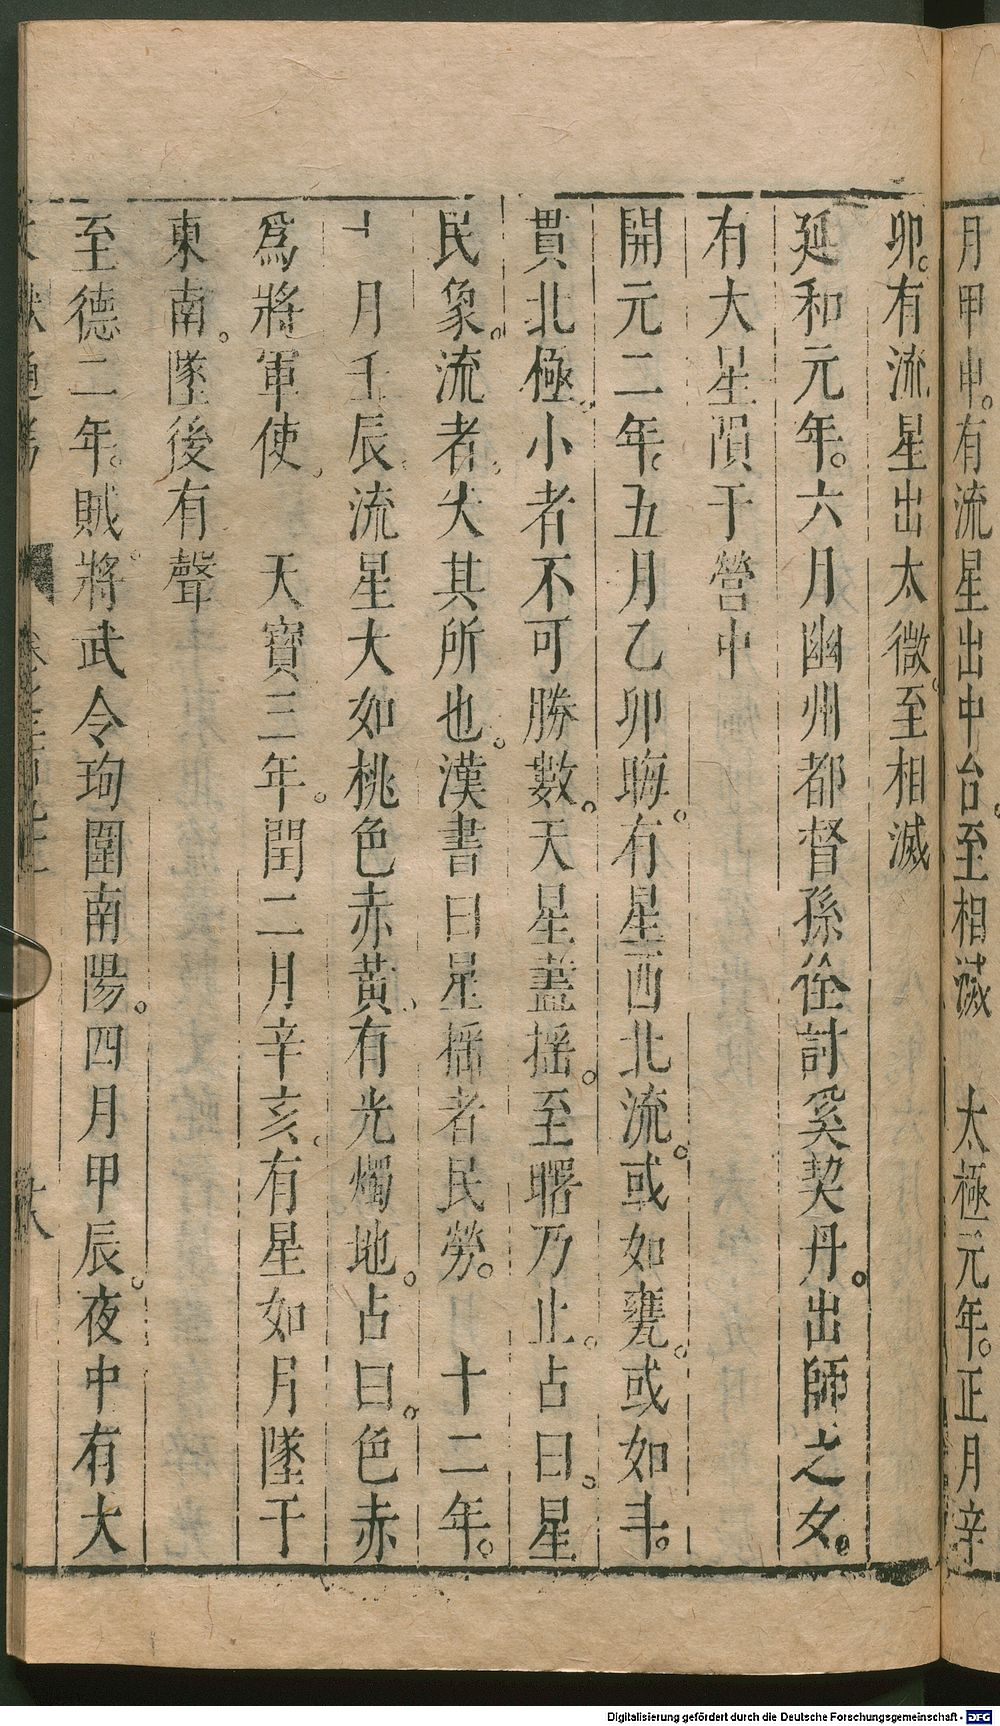 月甲申。有流星出中台。至相滅　太極元年。正月辛
卯。有流星出太微。至相滅
延和元年。六月幽州都督孫佺討奚契丹。出師之夕。
有大星隕于營中
開元二年。五月乙卯晦。有星西北流。或如甕。或如斗。
貫北極。小者不可勝數。天星盡搖。至曙乃止。占曰。星
民象。流者。失其所也。漢書曰星搖者民勞。　十二年。
十月壬辰。流星大如桃色赤黃。有光燭地。占曰。色赤
爲將軍使。　天寶三年。閏二月辛亥。有星如月墜于
東南。墜後有聲
至德二年。賊將。武令珣圍南陽。四月甲辰。夜中有大
Digitalisierung gefördert durch die Deutsche Forschungsgemeinschaft - DFG